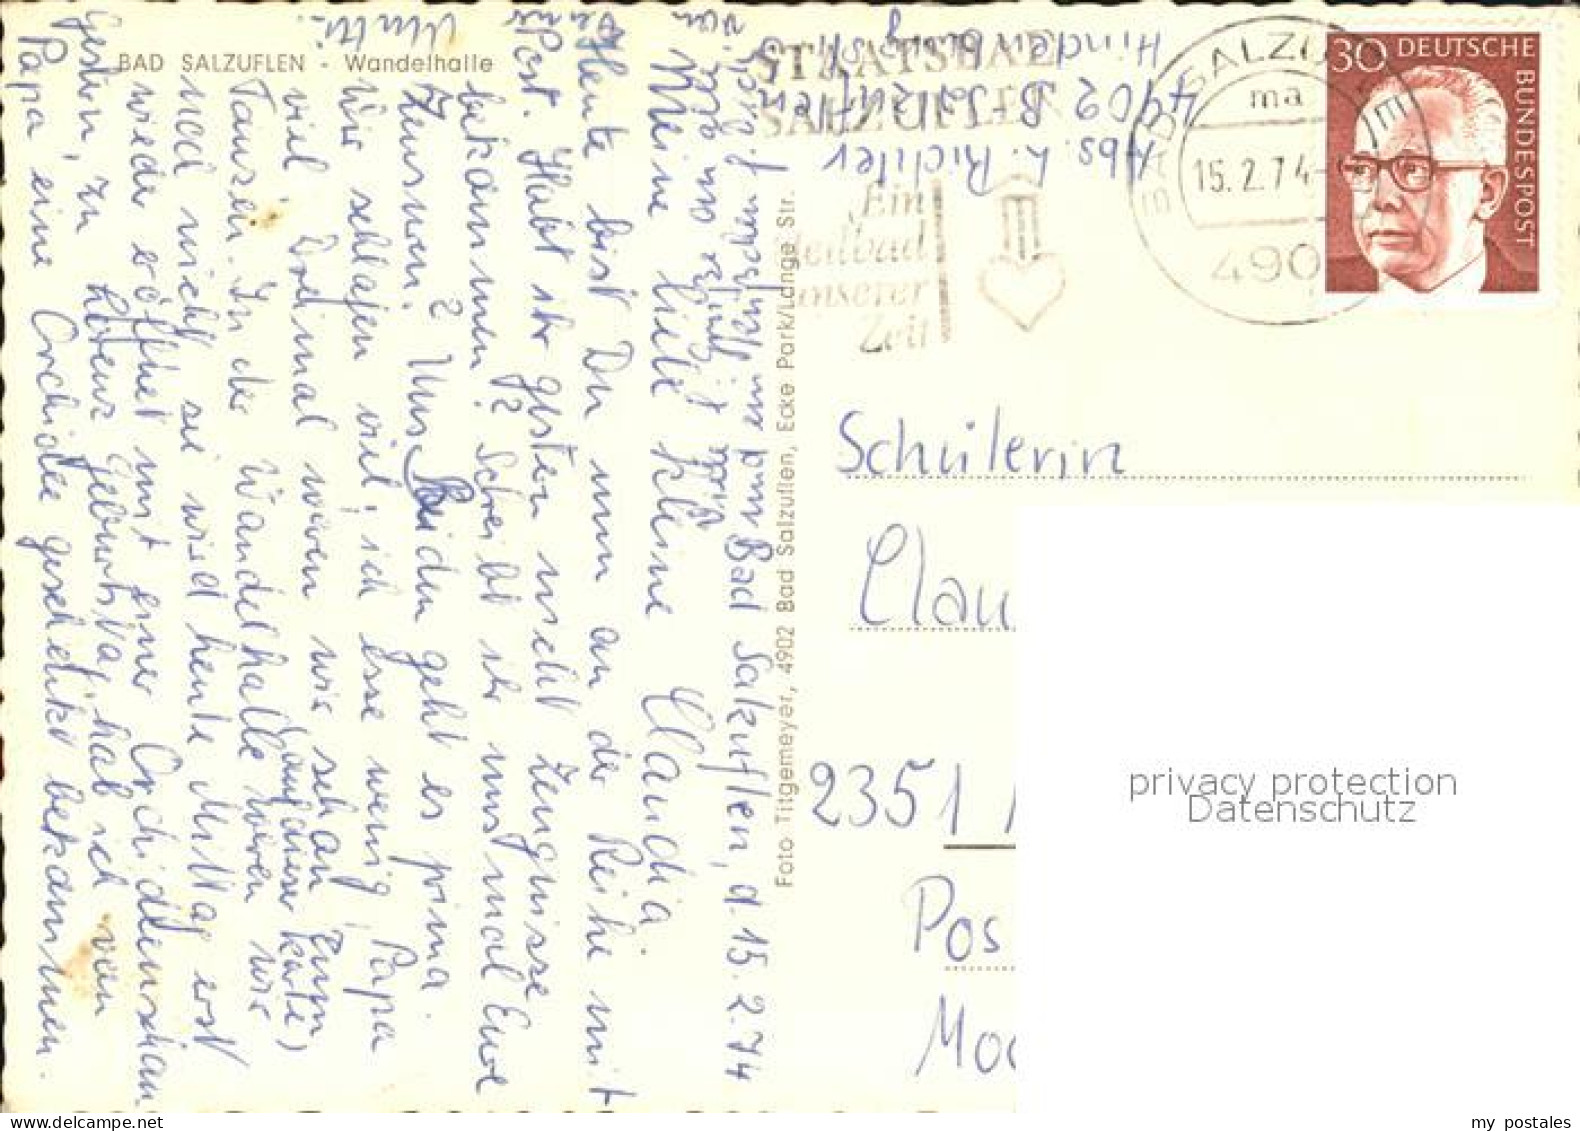 BAD SALZUFLEN - Wandelhalle
Bad Salzuflen, d. 15.2.74
Meine liebe kleine Claudia.
Heute bist Du nun an der Reihe mit
Post. Habt ihr gestern nicht Zeugnisse
bekommen? Schreibt ihr uns mal Eure
Zensuren? Uns Beiden geht es prima.
Wir schlafen viel, ich esse wenig, Papa
viel. Dreimal waren wir schon zum
Tanzen. In der Wandelhalle (auf dieser Karte) waren wir
noch nicht, sie wird heute Mittag erst
wieder eröffnet mit einer Orchideenschau.
Gestern, zu Lorenz Geburtstag, hab ich von
Papa eine Orchidee geschenkt bekommen.
Mutti.
Foto Titgemeyer, 4902 Bad Salzuflen, Ecke Park/Lange Str.
Abs. L. Richter
4902 B. Salzuflen
Hindenburgstr.
STAATSBAD
SALZUFLEN
Ein
Heilbad
unserer
Zeit
BAD SALZUFLEN
ma
15.2.74-
490
30 DEUTSCHE
BUNDESPOST
Schülerin
Clau
2351
Pos
Moo
privacy protection
Datenschutz
my postales